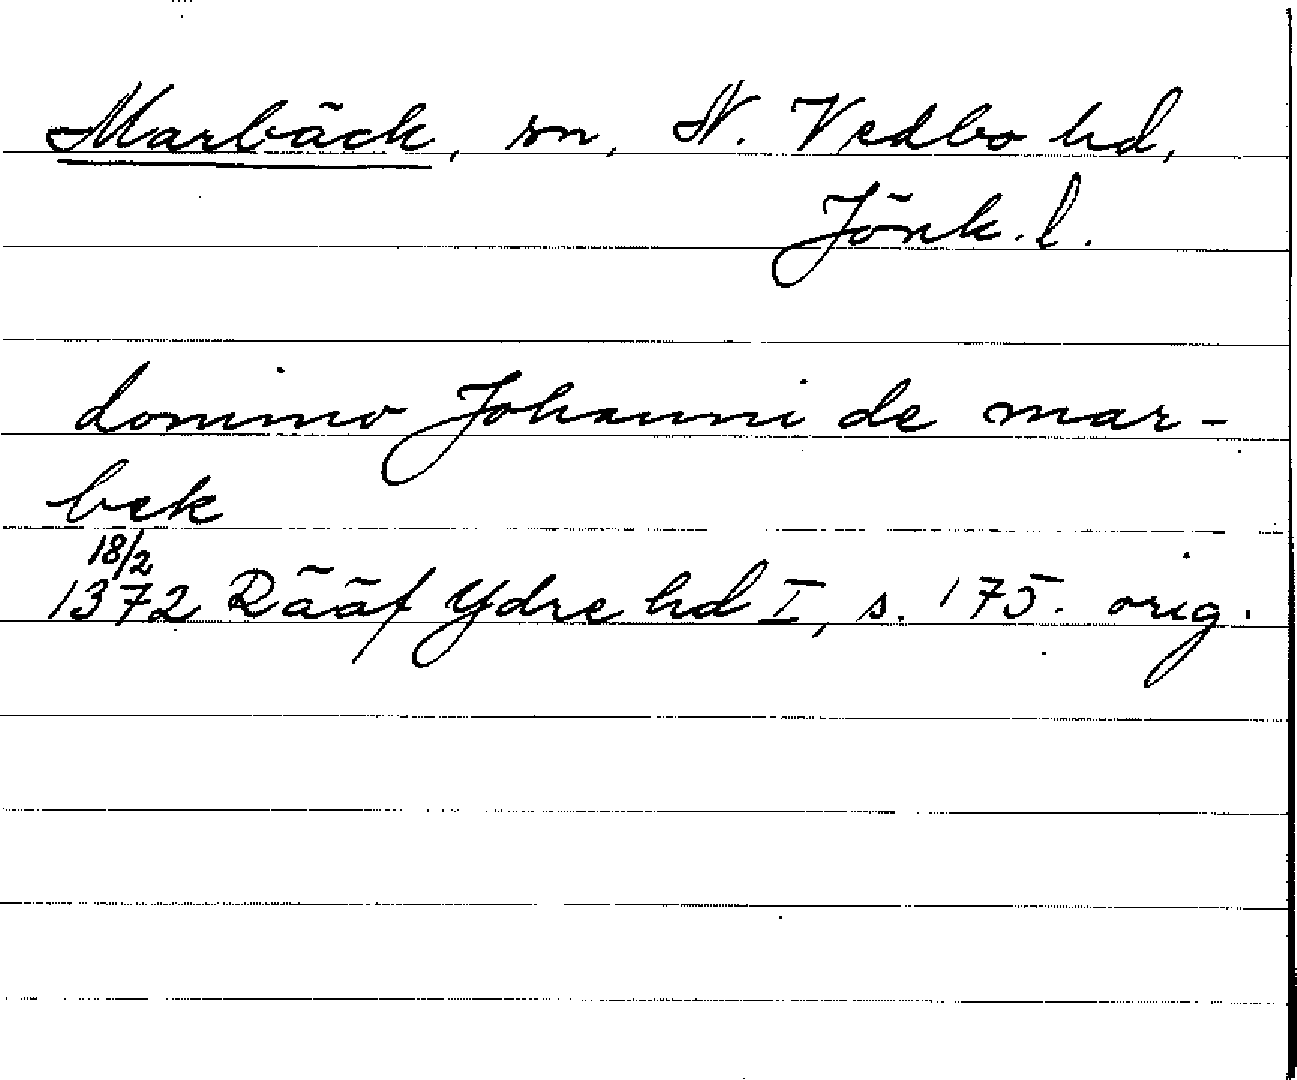 Marbäck, sn, N. Vedbo hd,
Jönk. l.
domino Johanni de mar-
bek
18/2
1372 Rääf Ydre hd I, s. 175. orig.